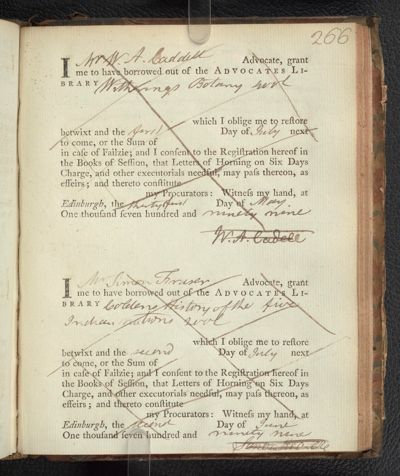 266
I Mr W. A. Caddell Advocate, grant
me to have borrowed out of the ADVOCATES LI-
BRARY Witherings Botany 4vol
which I oblige me to reſtore
betwixt and the first Day of July next
to come, or the Sum of
in caſe of Failzie; and I conſent to the Regiſtration hereof in
the Books of Seſſion, that Letters of Horning on Six Days
Charge, and other executorials needful, may paſs thereon, as
effeirs; and thereto conſtitute
my Procurators: Witneſs my hand, at
Edinburgh, the thirty first Day of May.
One thouſand ſeven hundred and ninety nine
W. A. Cadell
I Mr Simon Fraser Advocate, grant
me to have borrowed out of the ADVOCATES LI-
BRARY Coldens History of the five
Indian nations 2vol
which I oblige me to reſtore
betwixt and the second Day of July next
to come, or the Sum of
in caſe of Failzie; and I conſent to the Regiſtration hereof in
the Books of Seſſion, that Letters of Horning on Six Days
Charge, and other executorials needful, may paſs thereon, as
effeirs; and thereto conſtitute
my Procurators: Witneſs my hand, at
Edinburgh, the second Day of June
One thouſand ſeven hundred and ninety nine